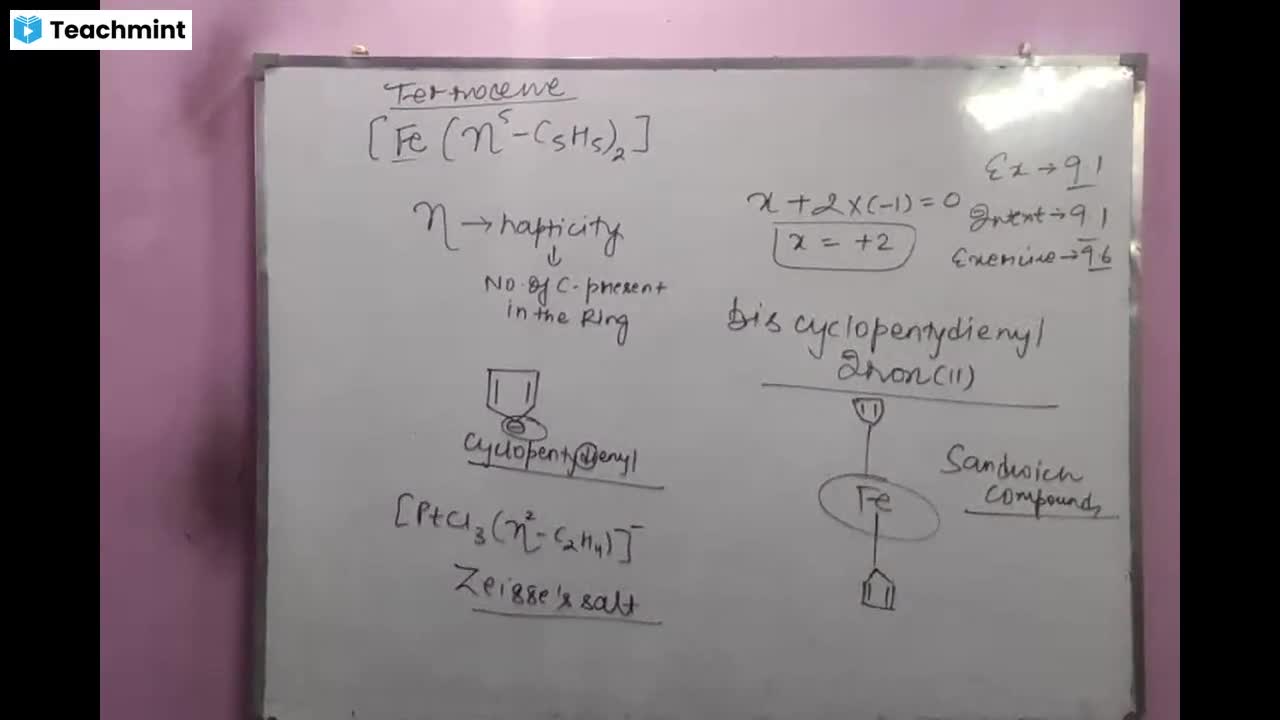 Teachmint
Ferrocene
[Fe(η⁵-C₅H₅)₂]
η → hapticity
↓
No. of C- present
in the Ring
Cyclopentydienyl
[PtCl₃(η²-C₂H₄)]⁻
Zeisse's salt
Ex → 9.1
Intext → 9.1
Exercise → 9.6
x + 2×(-1) = 0
x = +2
bis cyclopentydienyl
Iron(II)
Fe
Sandwich
Compounds